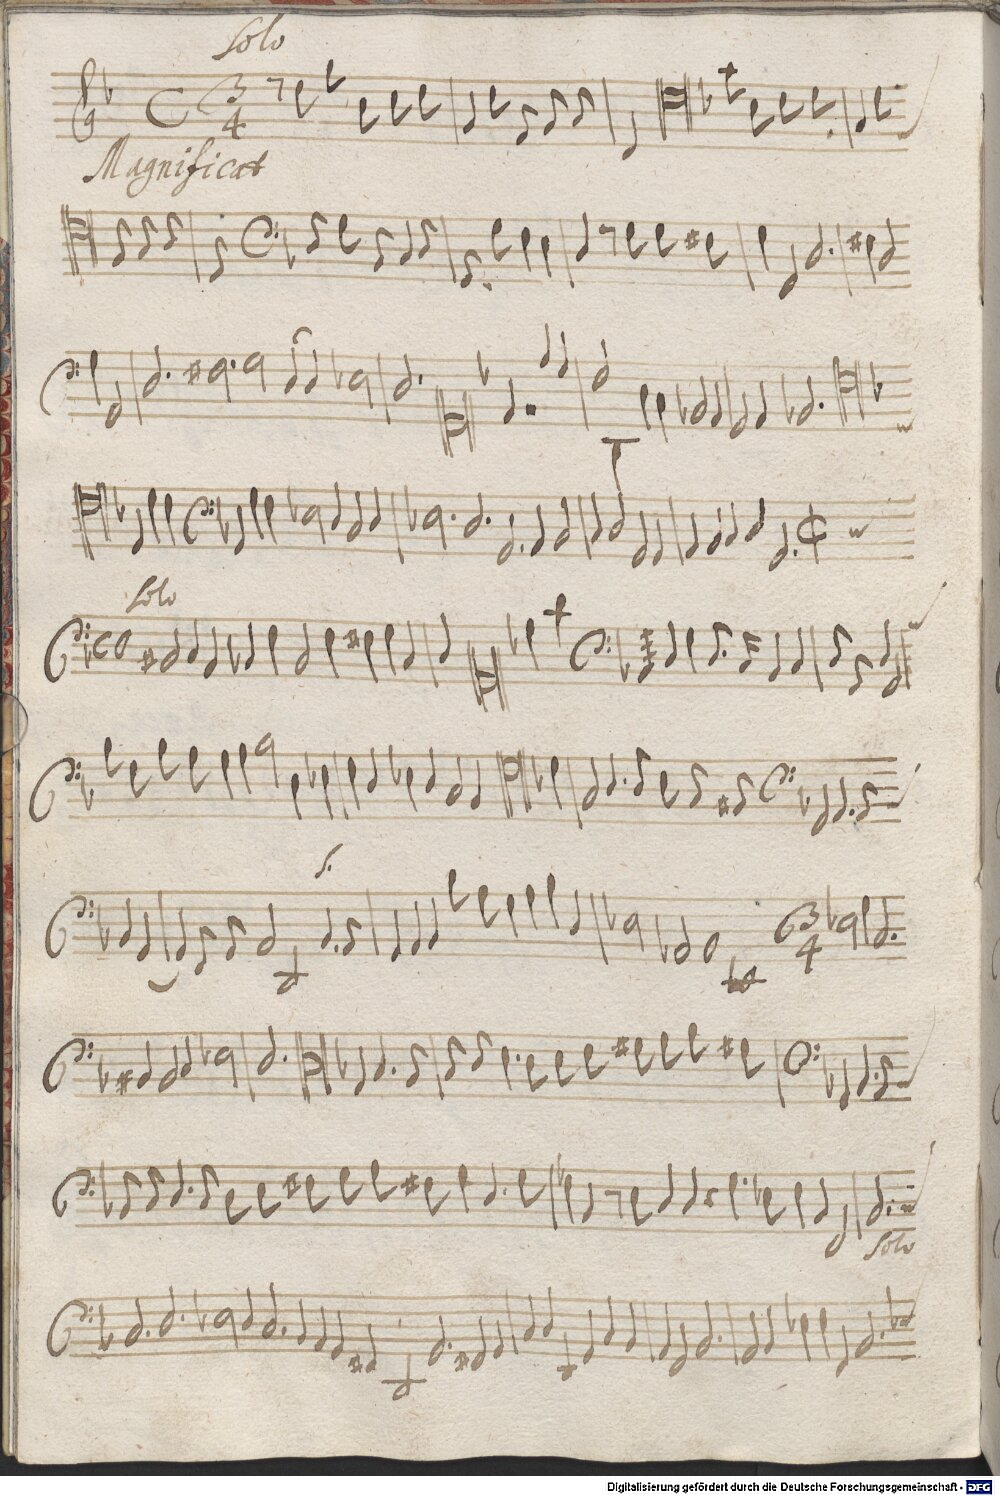 Solo
C 3/4
Magnificat
Solo
S.
3/4
Solo
Digitalisierung gefördert durch die Deutsche Forschungsgemeinschaft - DFG